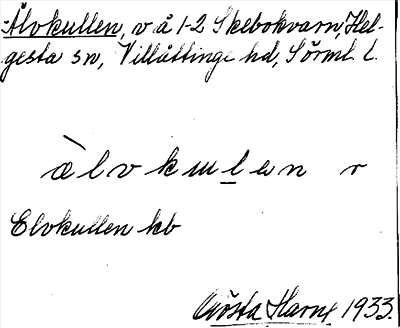 Älvkullen, v å 1-2 Skebokvarn, Hel-
gesta sn, Villåttinge hd, Sörml. l.
ὰlvkuḻen r
Elvkullen kb
Gösta Harne 1933.